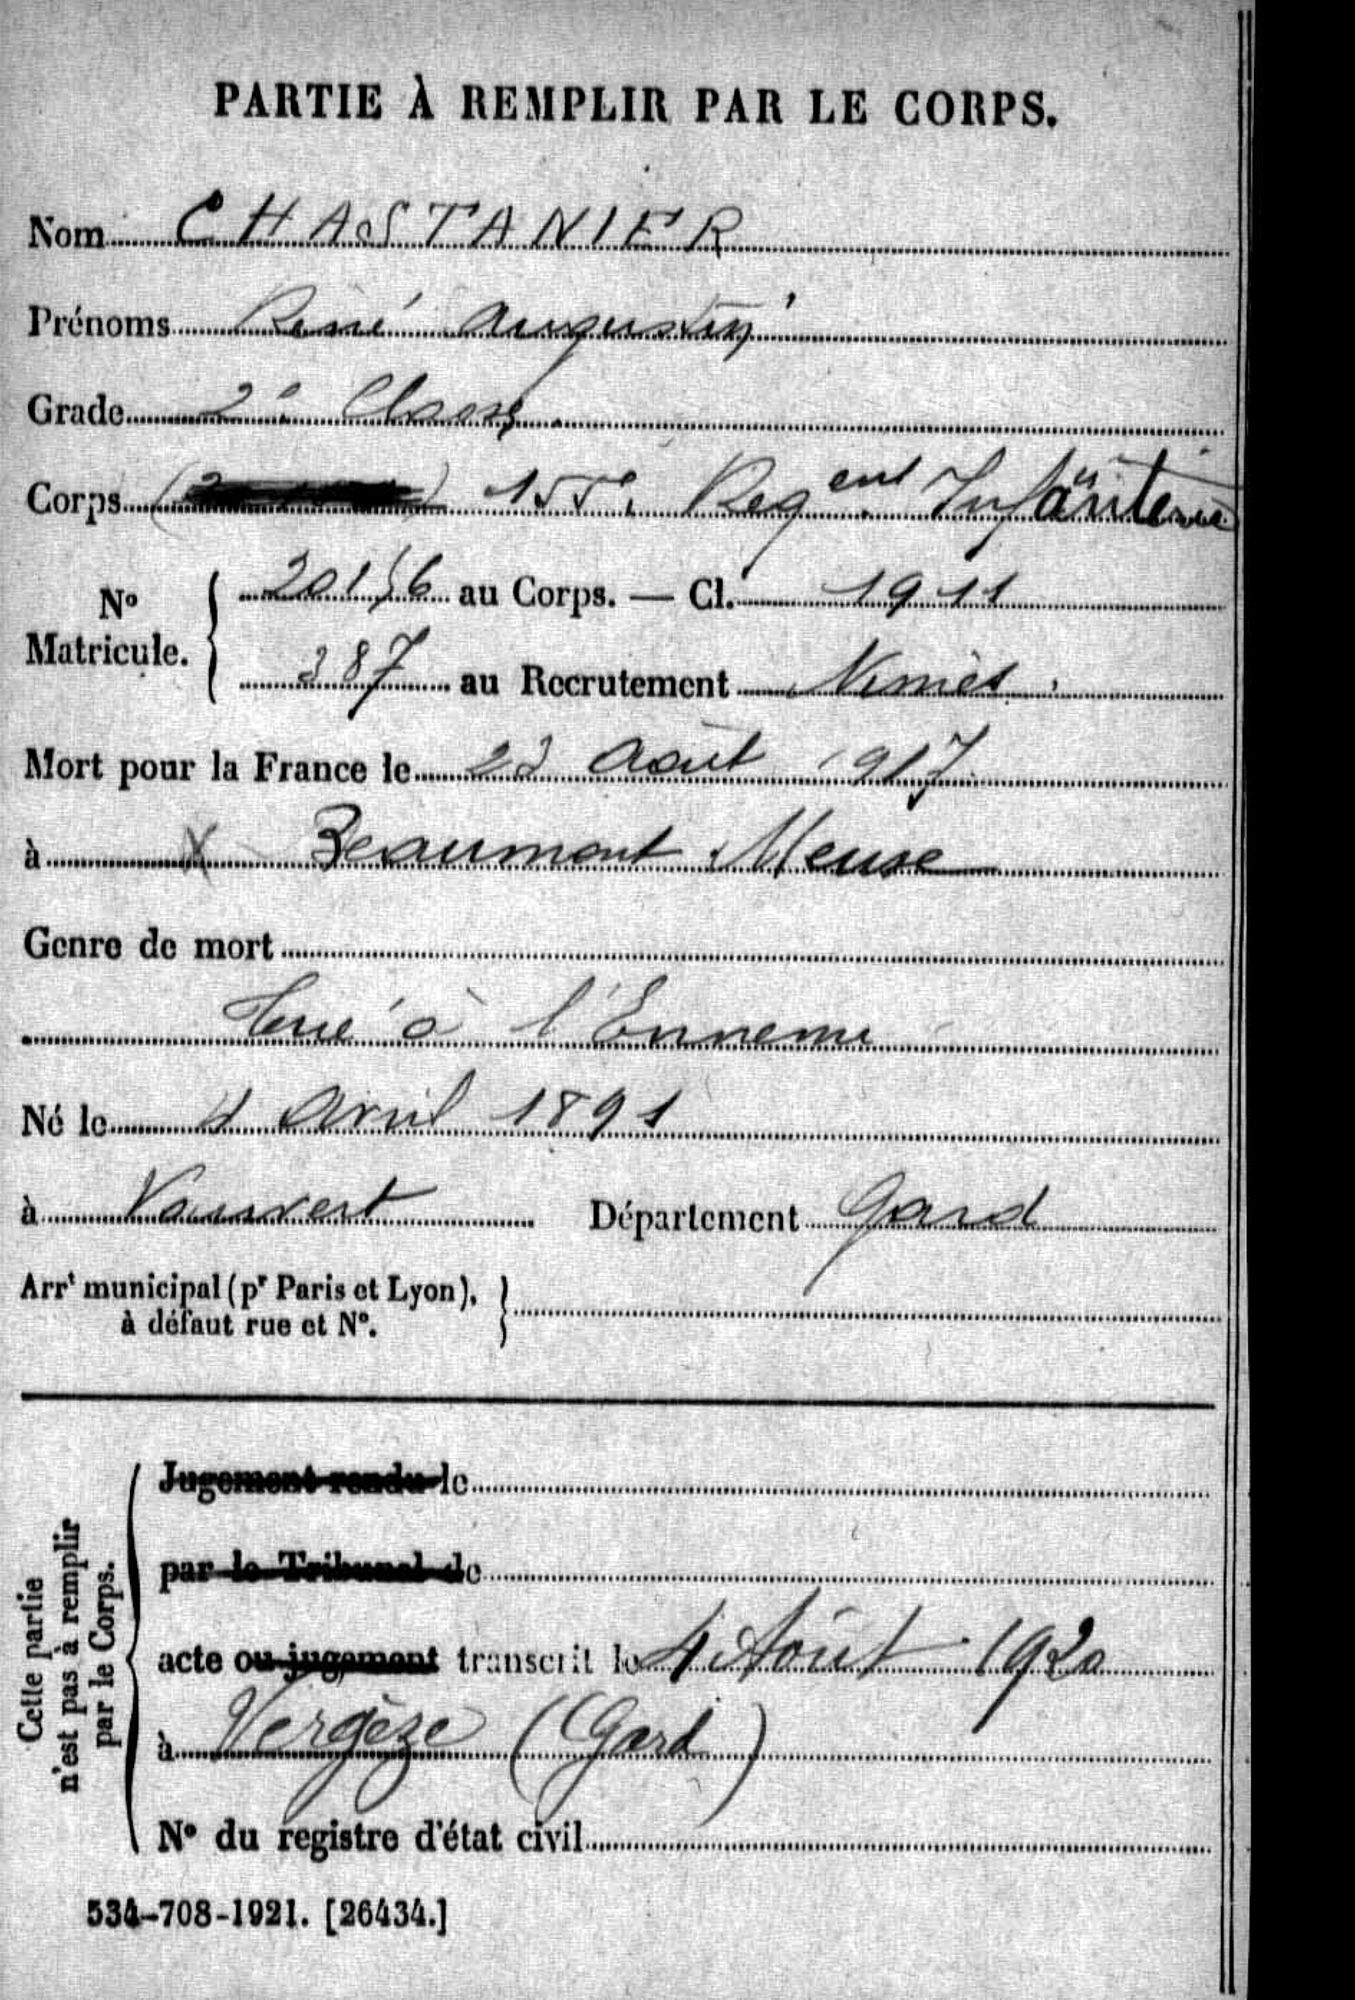 PARTIE À REMPLIR PAR LE CORPS.
Nom CHASTANIER
Prénoms René Augustin
Grade 2e Classe
Corps 155e Regent Infanterie
No Matricule. 20156 au Corps. — Cl. 1911
387 au Recrutement Nimès.
Mort pour la France le 23 Août 1917
à X Beaumont Meuse
Genre de mort
Tué à l'Ennemi
Né le 4 Avril 1891
à Vauvert Département Gard
Arrt municipal (pr Paris et Lyon),
à défaut rue et No.
Cette partie
n'est pas à remplir
par le Corps.
Jugement rendu le
par le Tribunal de
acte ou jugement transcrit le 4 Août 1920
à Vergèze (Gard)
No du registre d'état civil
534-708-1921. [26434.]